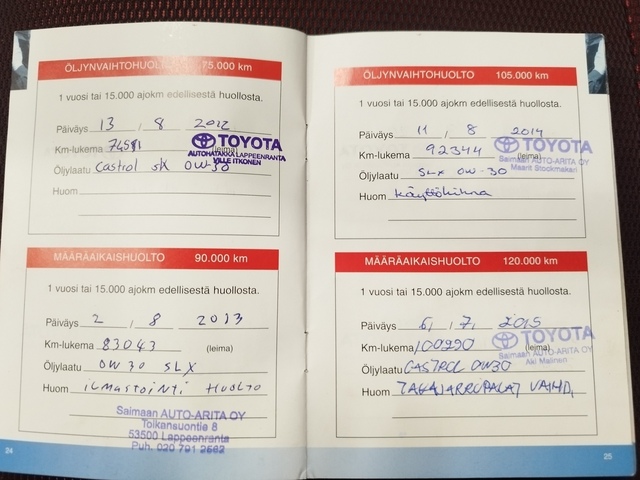 ÖLJYNVAIHTOHUOLTO 75.000 km
1 vuosi tai 15.000 ajokm edellisestä huollosta.
Päiväys 13 / 8 2012
Km-lukema
TOYOTA
AUTOHATAKKA LAPPEENRANTA
VILLE ITKONEN
Öljylaatu Castrol SLX 0W-30
Huom
MÄÄRÄAIKAISHUOLTO 90.000 km
1 vuosi tai 15.000 ajokm edellisestä huollosta.
Päiväys 2 / 8 2013
Km-lukema 83043 (leima)
Öljylaatu 0W30 SLX
Huom ILMASTOINTI HUOLTO
Saimaan AUTO-ARITA OY
Toikansuontie 8
53500 Lappeenranta
Puh. 020 791 2662
24
ÖLJYNVAIHTOHUOLTO 105.000 km
1 vuosi tai 15.000 ajokm edellisestä huollosta.
Päiväys 11 / 8 2014
Km-lukema 92344 (leima)
TOYOTA
Saimaan AUTO-ARITA OY
Maarit Stockmakeri
Öljylaatu SLX 0W-30
Huom Käyttöhihna
MÄÄRÄAIKAISHUOLTO 120.000 km
1 vuosi tai 15.000 ajokm edellisestä huollosta.
Päiväys 6 / 7 2015
Km-lukema 100990 (leima)
TOYOTA
Saimaan AUTO-ARITA OY
Aki Malinen
Öljylaatu CASTROL 0W30
Huom TAKAJARRUPALAT VAIHD.
25